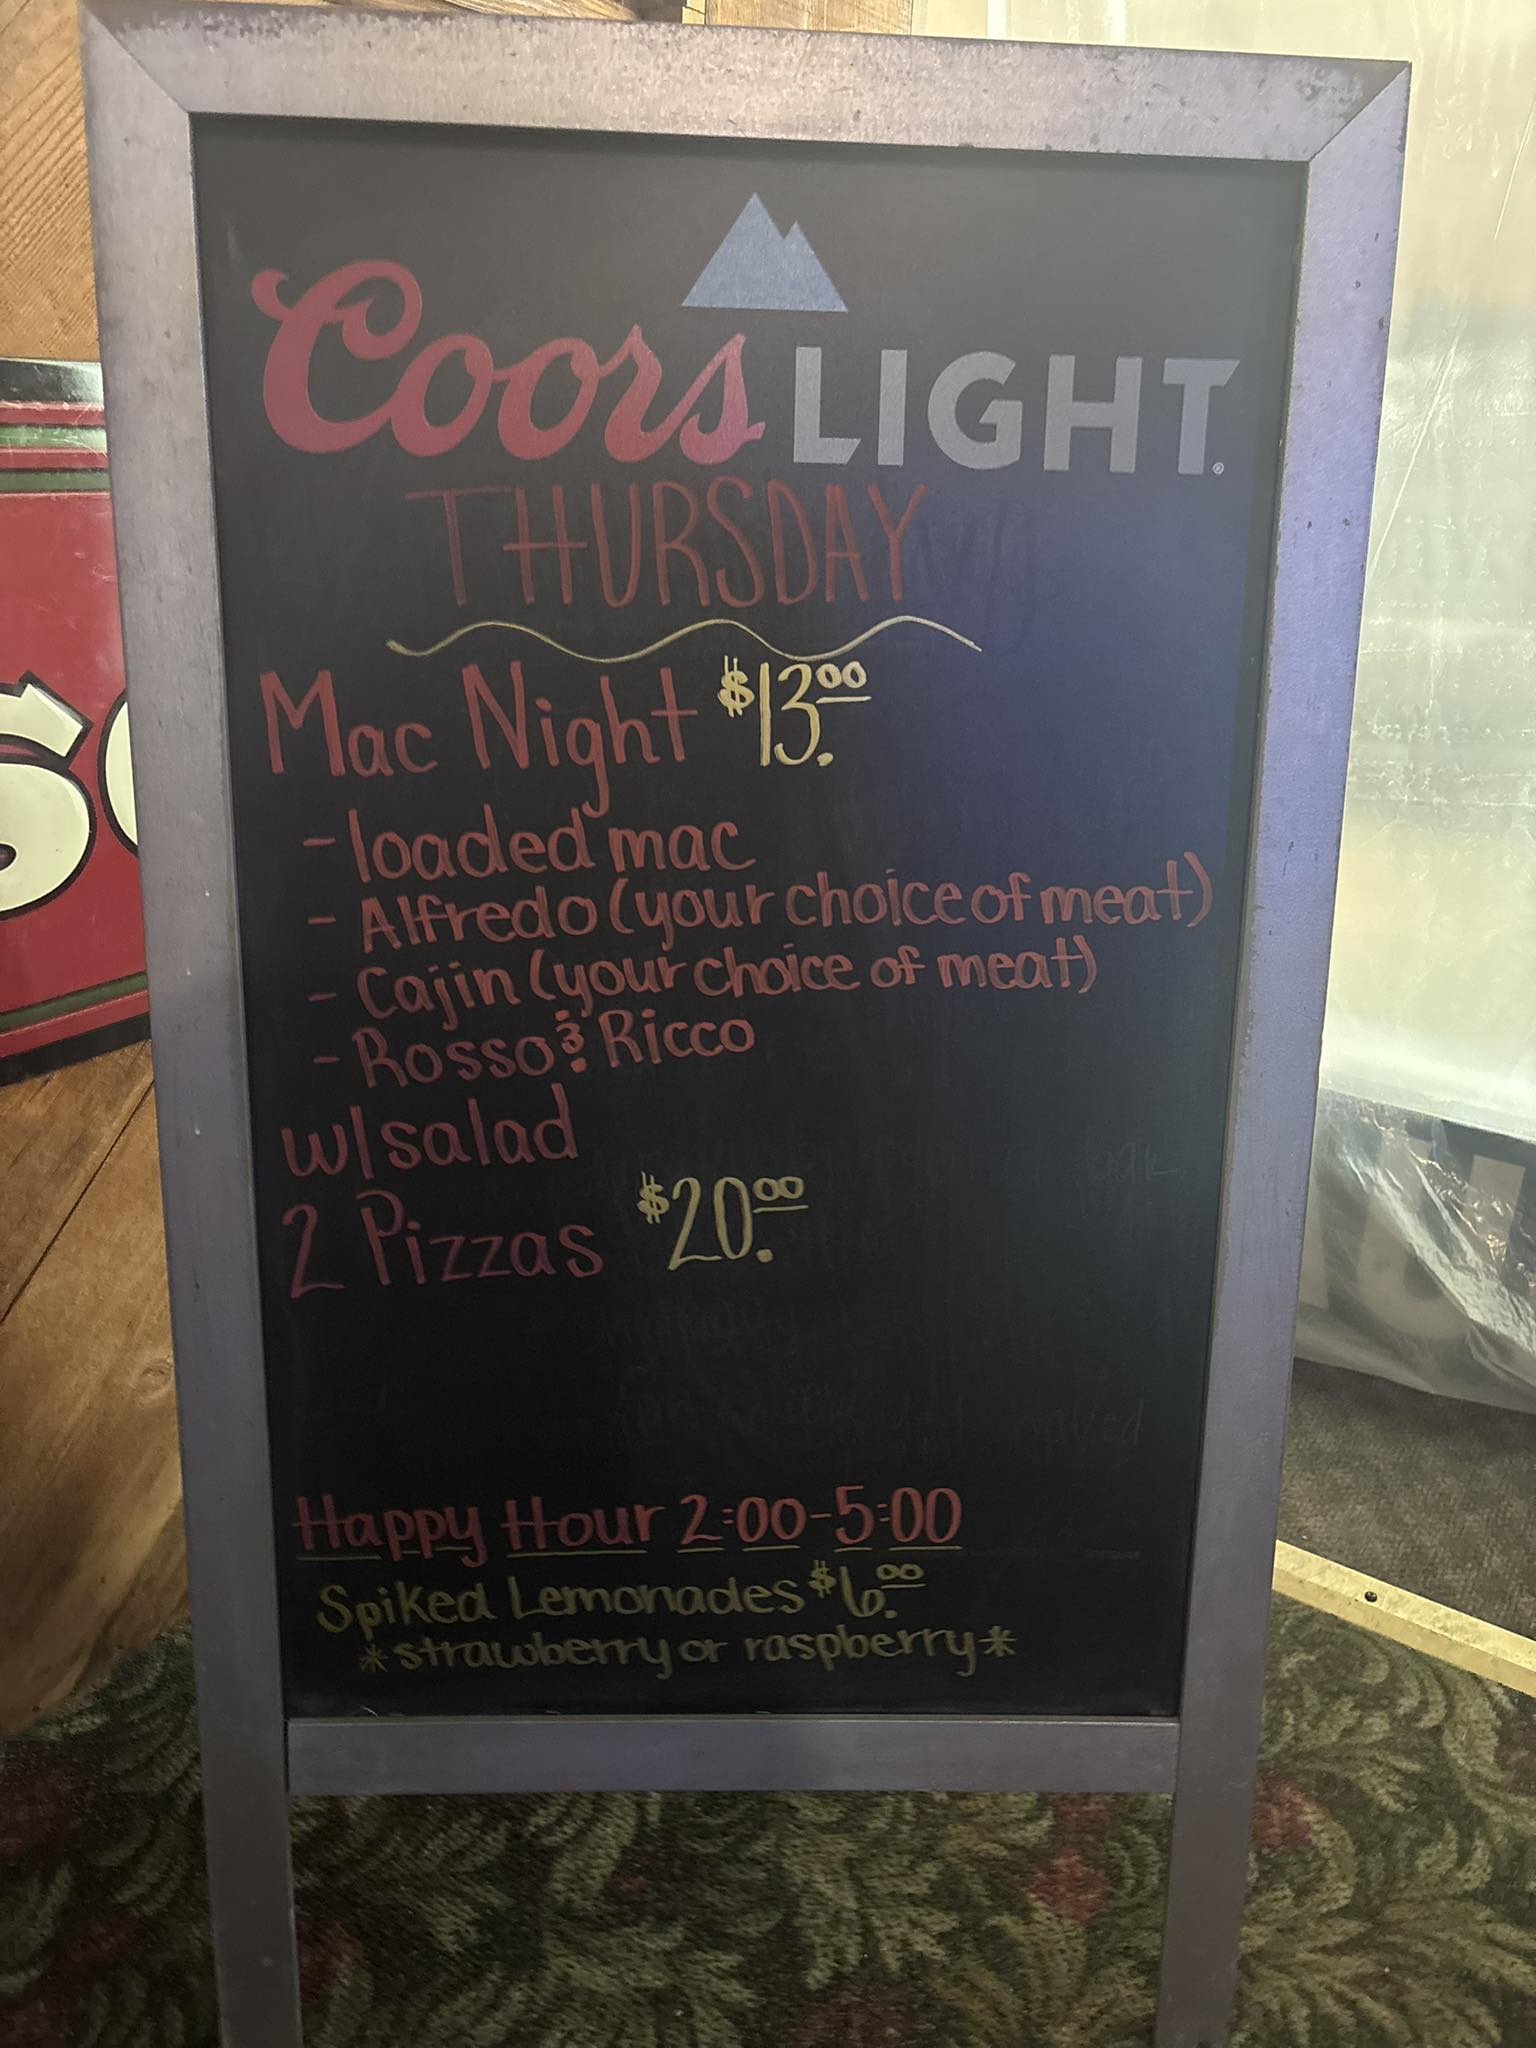 Coors LIGHT®
THURSDAY
Mac Night $13.00
- loaded mac
- Alfredo (your choice of meat)
- Cajin (your choice of meat)
- Rosso & Ricco
w/salad
2 Pizzas $20.00
Happy Hour 2:00-5:00
Spiked Lemonades $6.00
*strawberry or raspberry*